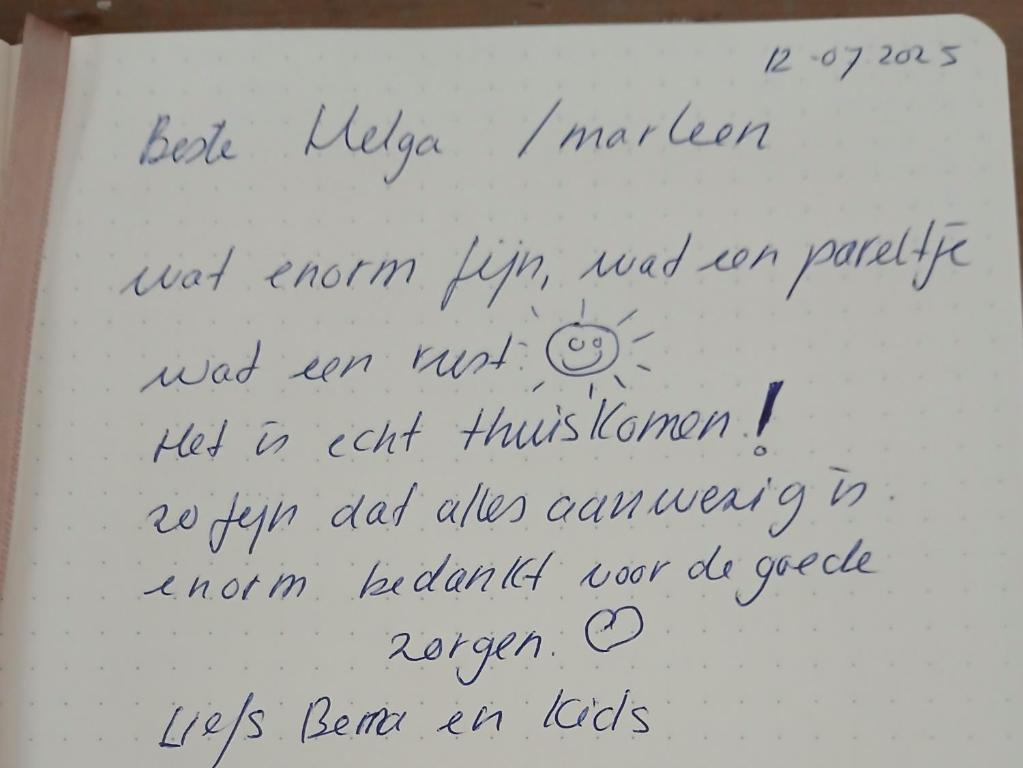 12.07.2025
Beste Helga / marleen
wat enorm fijn, wat een pareltje
wat een rust.
Het is echt thuiskomen!
zo fijn dat alles aanwezig is.
enorm bedankt voor de goede
zorgen.
Liefs en Kids